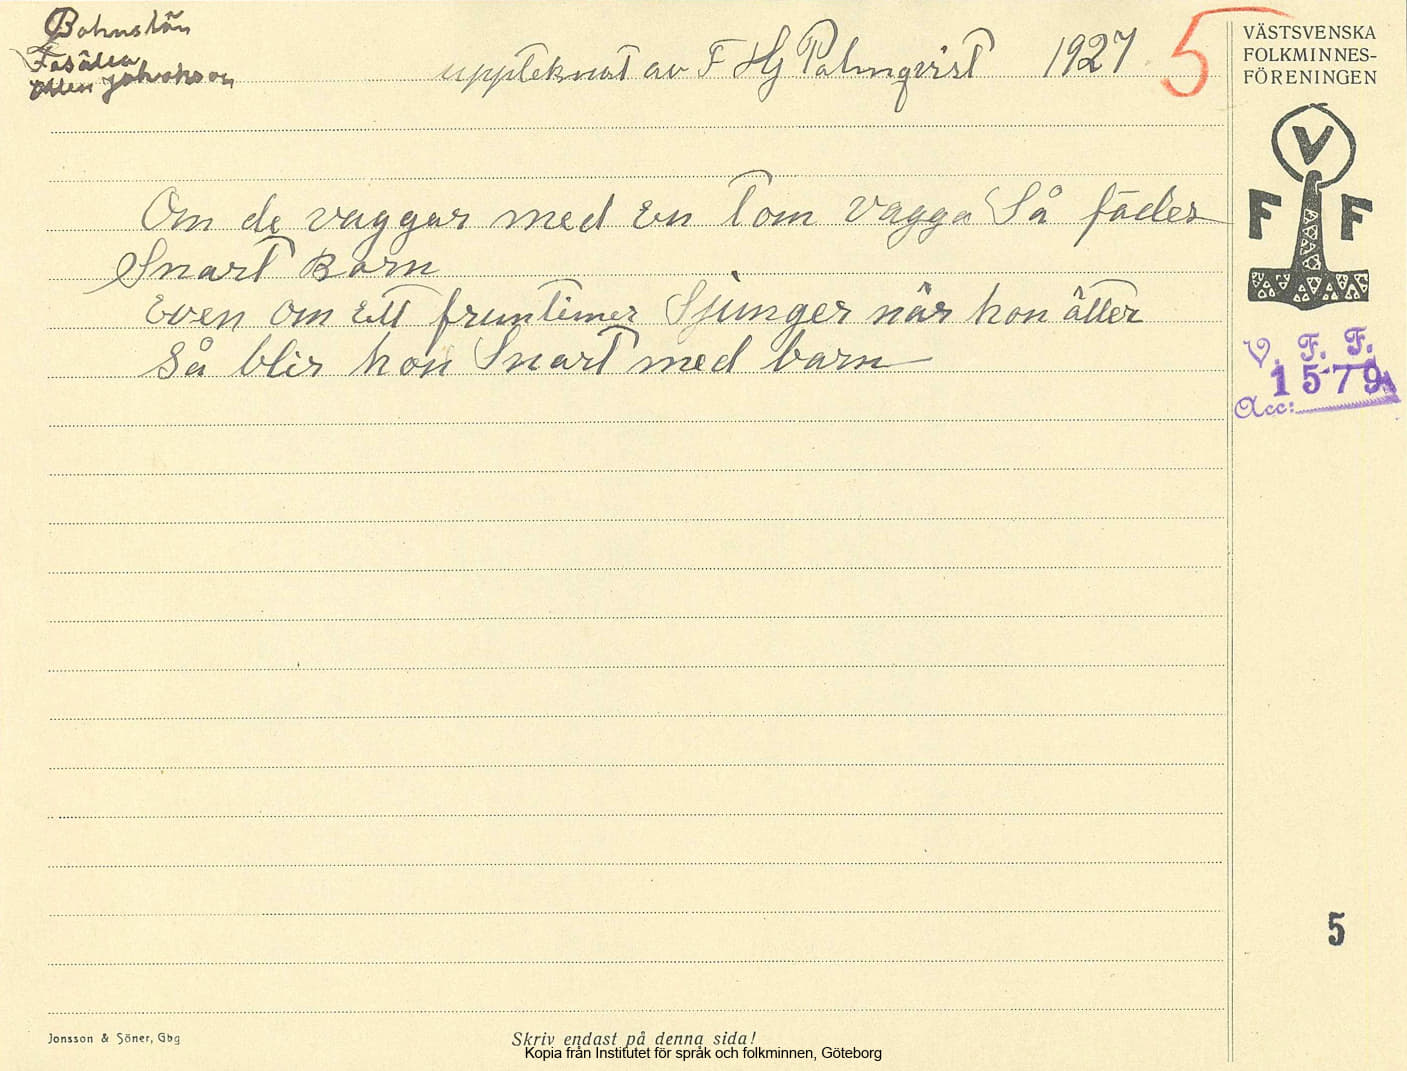 Bohuslän
Johanson
uppteknat av F Hj Palmqvist 1927.
5
VÄSTSVENSKA
FOLKMINNES-
FÖRENINGEN
V
F F
Om de vaggar med en Tom vagga Så födes
Snart Barn
Even om Ett fruntimer Sjunger når hon åtter
Så blir hon Snart med barn
V. F. F.
1579
Acc:
5
Jonsson & Söner, Gbg
Skriv endast på denna sida!
Kopia från Institutet för språk och folkminnen, Göteborg